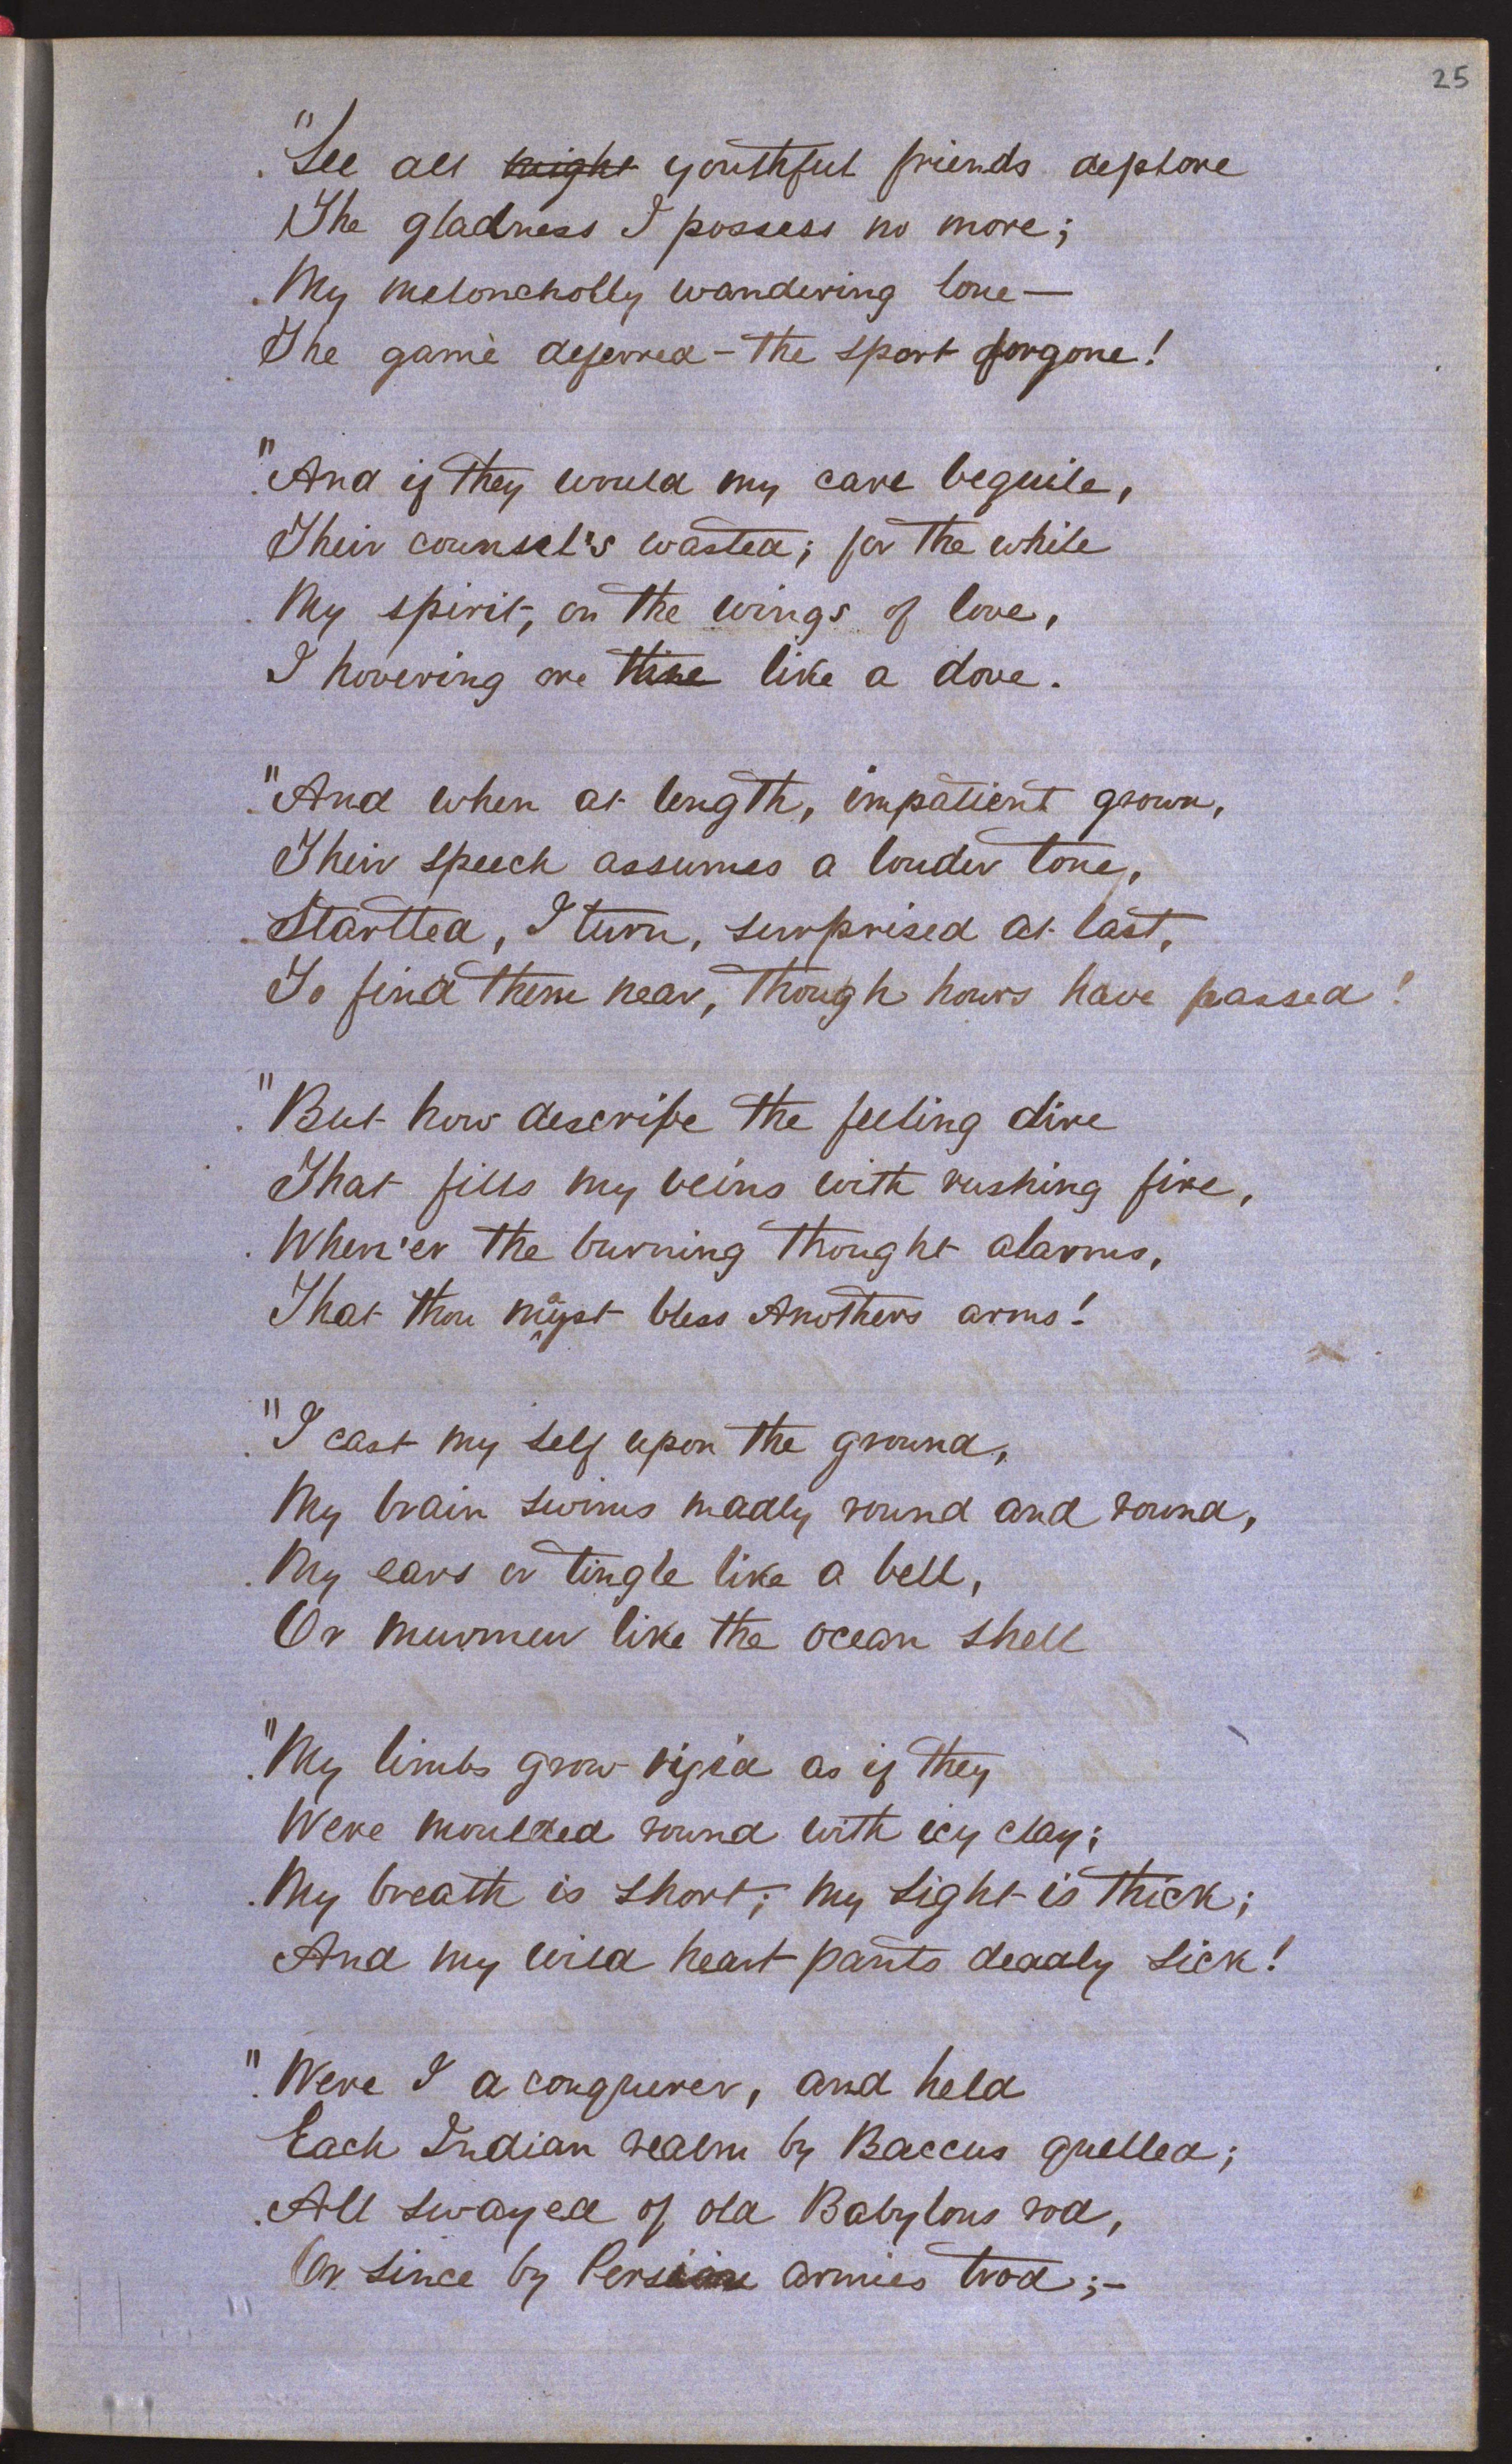 25
"See all ~~might~~ youthful friends deplore
The gladness I possess no more;
My meloncholly wandering lone—
The game deferred - the sport forgone!
"And if they would my care beguile,
Their counsel's wasted; for the while
My spirit, on the wings of love,
I hovering ore thine like a dove.
"And when at length, impatient grown,
Their speech assumes a louder tone,
Startted, I turn, surprised at last,
To find them near, though hours have passed!
"But how describe the feeling dire
That fills my veins with rushing fire,
When'er the burning thought alarms,
That thou mayst bless Anothers arms!
"I cast my self upon the ground,
My brain swims madly round and round,
My ears or tingle like a bell,
Or murmur like the ocean shell
"My limbs grow rigid as if they
Were moulded round with icy clay;
My breath is short; my sight is thick;
And my wild heart pants deadly sick!
"Were I a conqurer, and held
Each Indian realm by Baccus quelled;
All swayed of old Babylons rod,
Or since by Persian armies trod;-